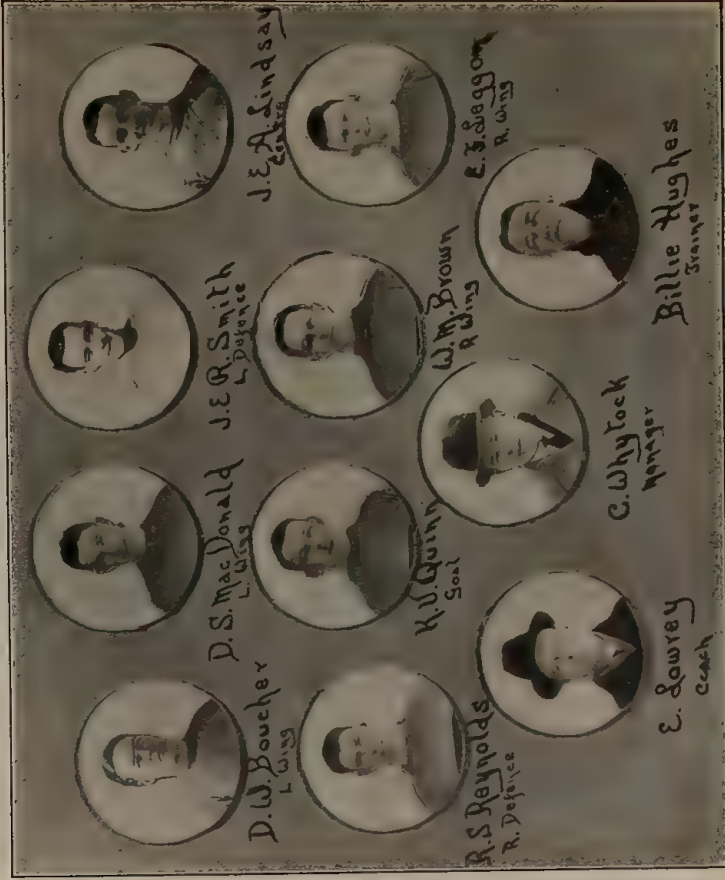 D.W. Boucher
L Wing
D.S. MacDonald
L. Wing
J.E.R. Smith
L. Defence
J.E.A. Lindsay
Centre
R.S Reynolds
R. Defence
Quinn
Goal
W.M. Brown
R Wing
R Wing
E. Lowrey
Coach
C. Whytock
Manager
Billie Hughes
Trainer